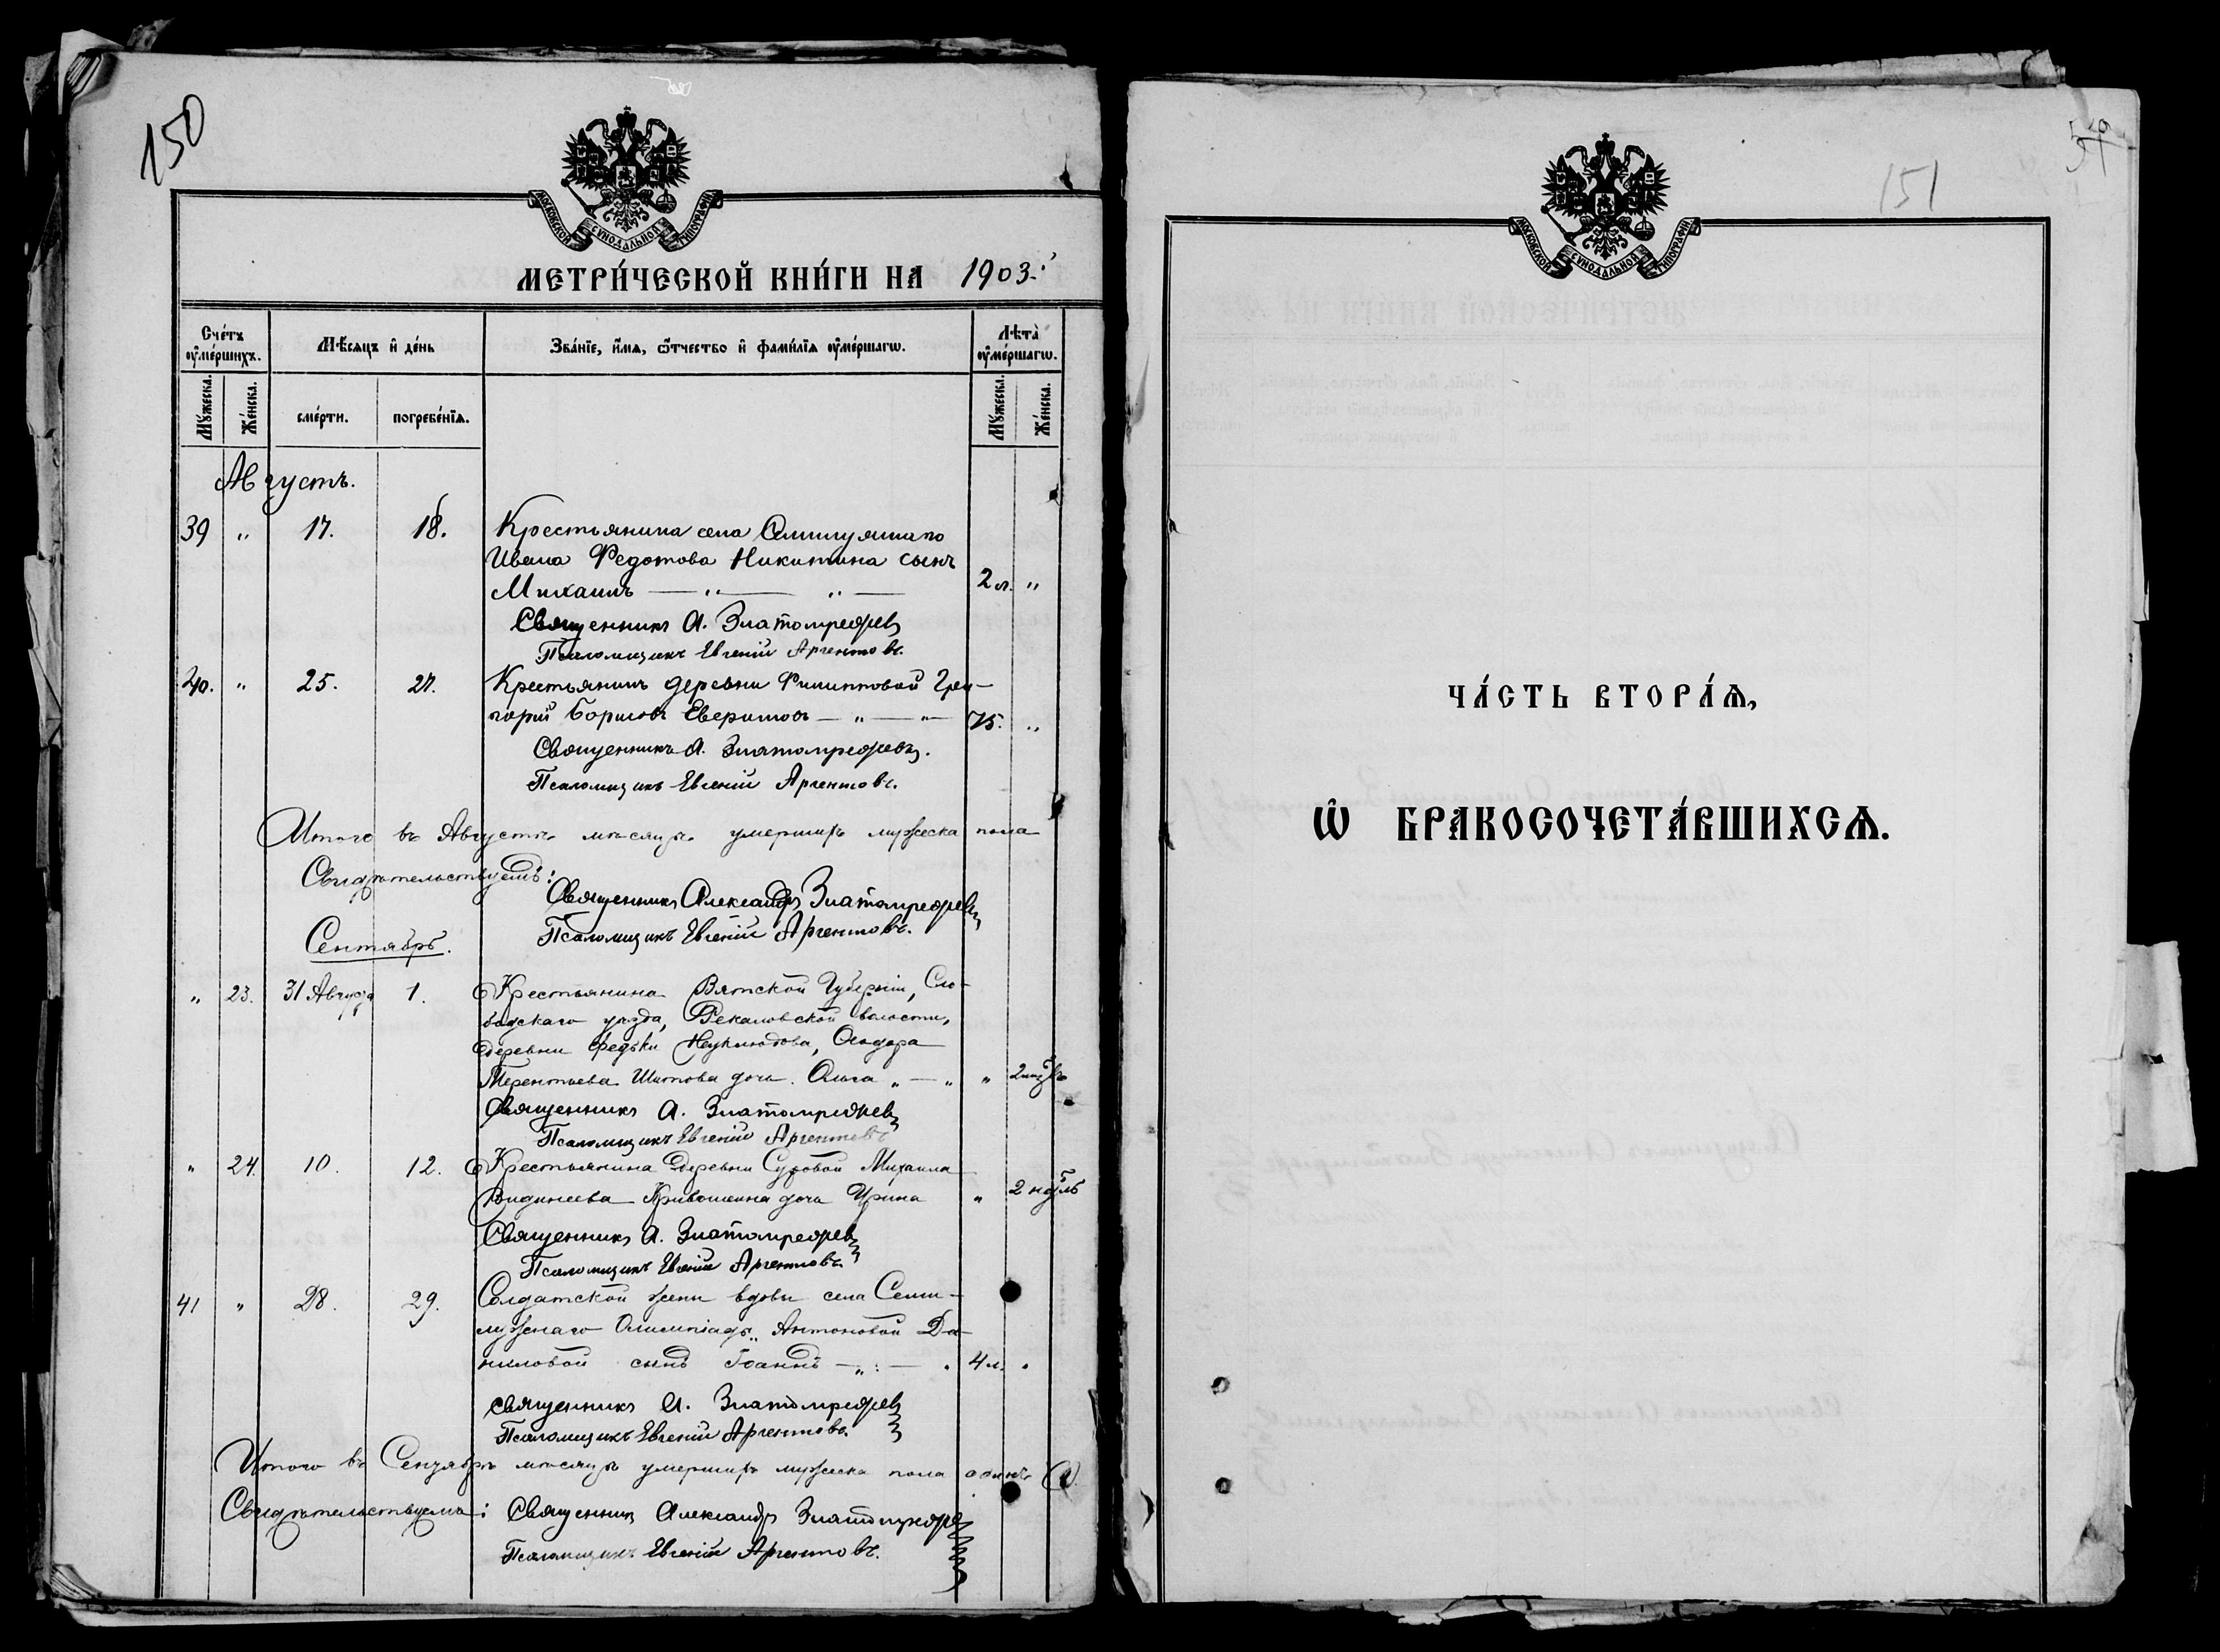 150
МОСКОВСКОЙ СѴНОДАЛЬНОЙ ТИПОГРАФІИ
МЕТРИ́ЧЕСКОЙ КНИ́ГИ НА 1903.
Сче́тъ ᲂу҆ме́ршихъ.
Мѣ́сѧцъ и҆ де́нь
Зва́нїе, и҆́мѧ, ѻ҆́тчество и҆ фами́лїѧ ᲂу҆ме́ршагѡ.
Лѣта̀ ᲂу҆ме́ршагѡ.
Мꙋ́жеска.
Же́нска.
сме́рти.
погребе́нїѧ.
Мꙋ́жеска.
Же́нска.
Августъ.
39 „ 17. 18. Крестьянина села Семилужнаго
Ивана Федотова Никитина сынъ
Михаилъ — „ — „ — 2 л. „
Священникъ А. Златомрежевъ
Псаломщикъ Евгеній Аргентовъ.
40. „ 25. 27. Крестьянинъ деревни Филипповой Гри-
горій Борисовъ — „ — „ — 75. „
Священникъ А. Златомрежевъ.
Псаломщикъ Евгеній Аргентовъ.
Итого въ Августѣ мѣсяцѣ умершихъ мужеска пола
Свидѣтельствуемъ:
Священникъ Александръ Златомрежевъ
Псаломщикъ Евгеній Аргентовъ.
Сентябрь.
„ 23. 31 Августа 1. Крестьянина Вятской Губерніи, Сло-
бодскаго уѣзда, волости,
деревни Федьки Неуклюдова, Ѳеодора
Терентьева Шитова дочь Ольга „ — „ „ 2 мѣс
Священникъ А. Златомрежевъ
Псаломщикъ Евгеній Аргентовъ
„ 24. 10. 12. Крестьянина деревни Суровой Михаила
Кривошеина дочь Ирина „ 2 недѣль
Священникъ А. Златомрежевъ
Псаломщикъ Евгеній Аргентовъ
41 „ 28. 29. Солдатской жены вдовы села Семи-
лужнаго Олимпіады Антоновой Да-
ниловой сынъ Іоаннъ — „ — 4 л.
Священникъ А. Златомрежевъ
Псаломщикъ Евгеній Аргентовъ.
Итого въ Сентябрѣ мѣсяцѣ умершихъ мужеска пола одинъ
Свидѣтельствуемъ: Священникъ Александръ Златомрежевъ
Псаломщикъ Евгеній Аргентовъ.
151
МОСКОВСКОЙ СѴНОДАЛЬНОЙ ТИПОГРАФІИ
ЧА́СТЬ ВТОРА́Ѧ,
Ѡ҆ БРАКОСОЧЕТА́ВШИХСѦ.